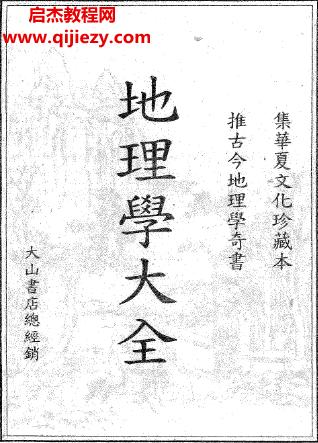 启杰教程网
www.qijiezy.com
集華夏文化珍藏本
推古今地理學奇書
地理學大全
大山書店總經銷